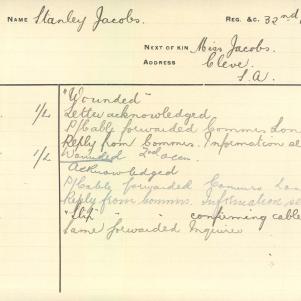 NAME Stanley Jacobs. REG. &C. 32nd
NEXT OF KIN Miss Jacobs.
ADDRESS Cleve.
S.A.
"Wounded"
1/2 Letter acknowledged
P/Cably forwarded Commrs Lon
Reply from Commrs. Information se
1/2 Wounded 2nd occn.
Acknowledged
P/Cably forwarded Commrs Lon
Reply from Commrs. Information se
"Slip" " " confirming cable
Same forwarded Inquirer